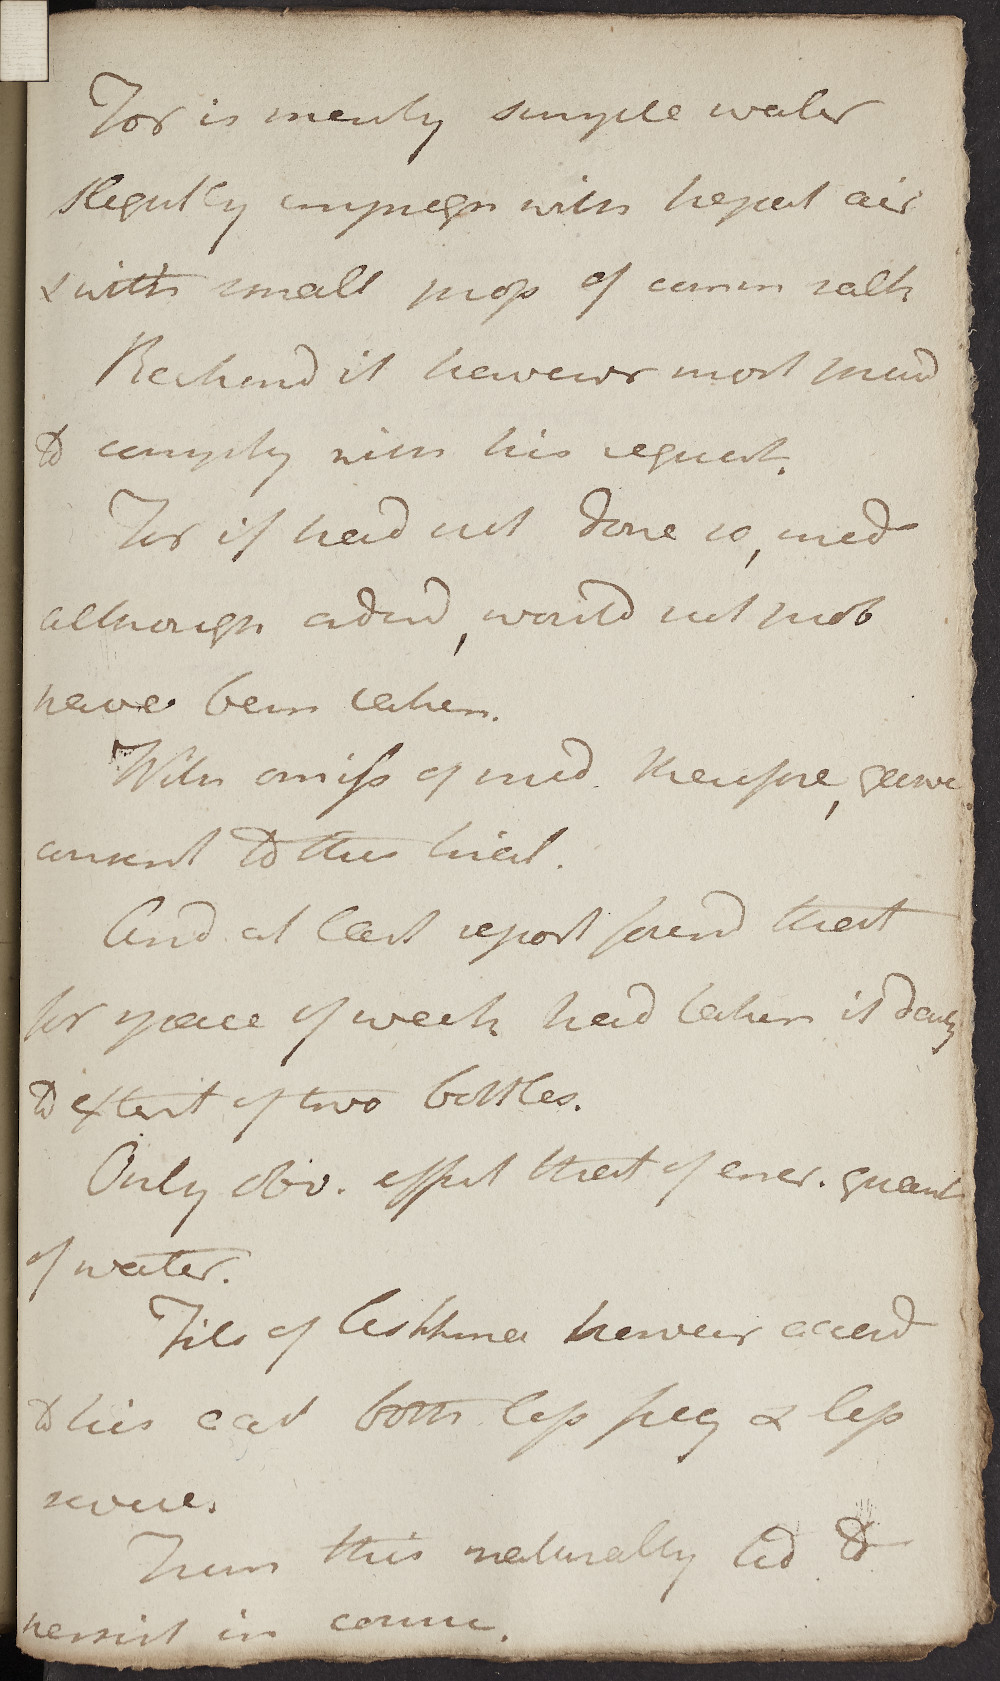 For is merely simple water
slightly impregn with hepat air
& with small prop of comm salt
Reckond it however most prud
to comply with his request.
For if had not done so, med
although orderd, would not prob
have been taken.
With omiss of med. therefore, gave
consent to this trial.
And at last report found that
for space of week had taken it daily
to extent of two bottles.
Only obv. effect that of encr. quant
of water.
Fits of Asthma however accord
to his acct both less freq & less
severe.
From this naturally led to
persist in course.